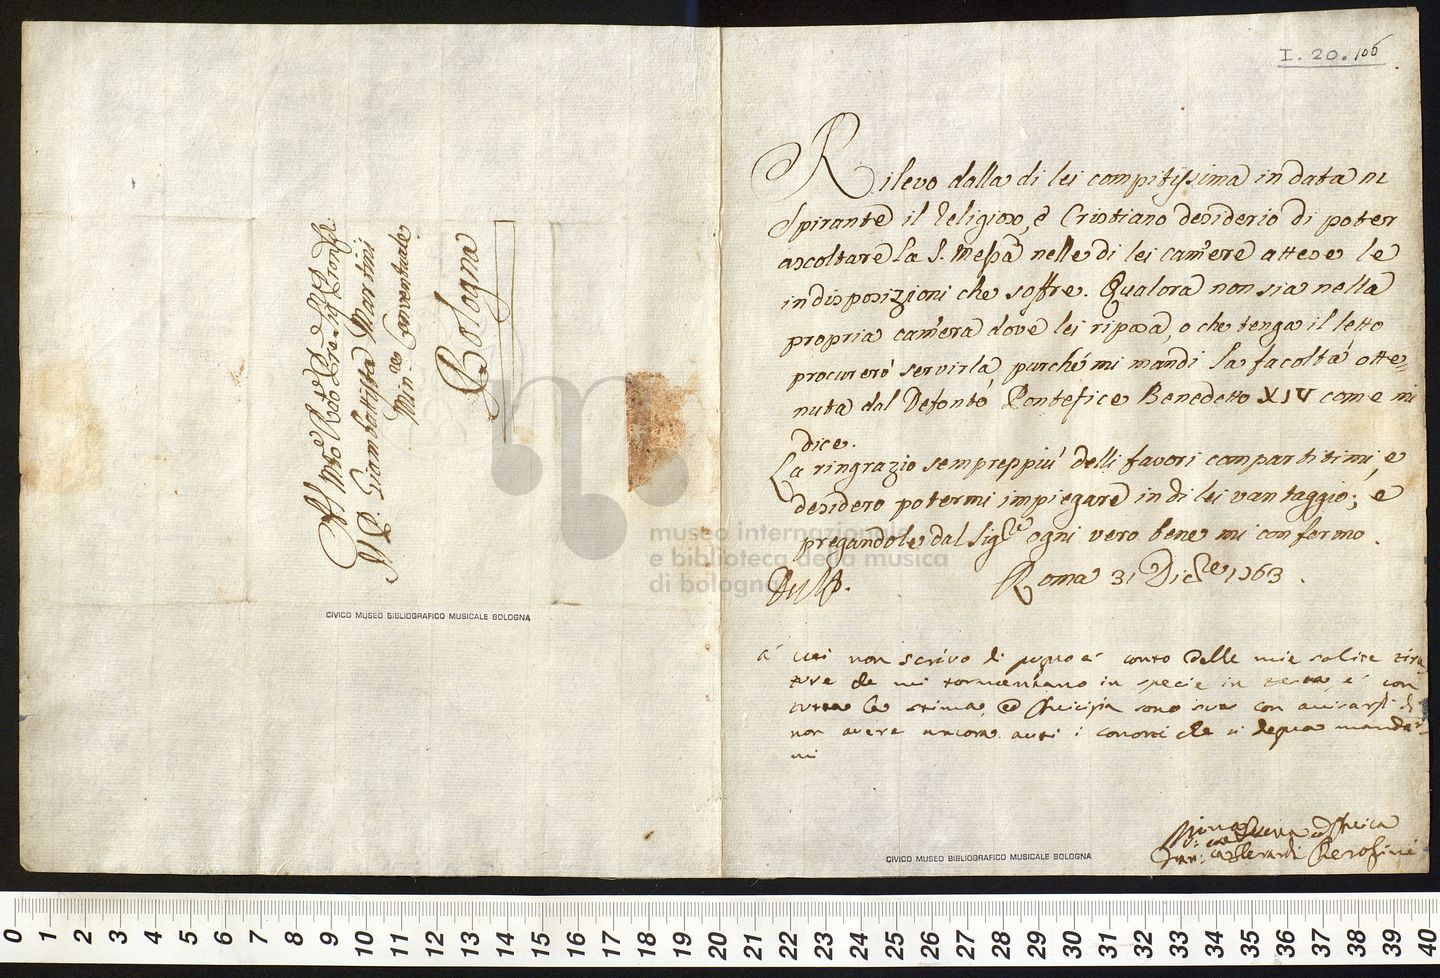 I. 20. 106
Rilevo dalla di lei compitissima in data
Spirante il Religioso, e Cristiano desiderio di poter
ascoltare la S. Messa nelle di lei camere attese le
indisposizioni che soffre. Qualora non sia nella
propria camera dove lei riposa, o che tenga il letto
procurerò servirla purché mi mandi la facoltà otte=
nuta dal Defonto Pontefice Benedetto XIV come mi
dice.
La ringrazio sempreppiù delli favori compartitimi, e
desidero potermi impiegare in di lei vantaggio; e
pregandole dal Sig.re ogni vero bene mi confermo.
Roma 31 Dicbre 1763.
non scrivo di pugno a conto delle mie solite
che mi tormentano in specie in testa, e con
tutta la stima, ed sono suo con avisarli di
non avere ancora auti i che si degna mandar
mi
Padre Sig. Pron
Giambattista Martini
Min. Conventuale
Bologna
museo internazionale
e biblioteca della musica
di bologna
CIVICO MUSEO BIBLIOGRAFICO MUSICALE BOLOGNA
CIVICO MUSEO BIBLIOGRAFICO MUSICALE BOLOGNA
0 1 2 3 4 5 6 7 8 9 10 11 12 13 14 15 16 17 18 19 20 21 22 23 24 25 26 27 28 29 30 31 32 33 34 35 36 37 38 39 40